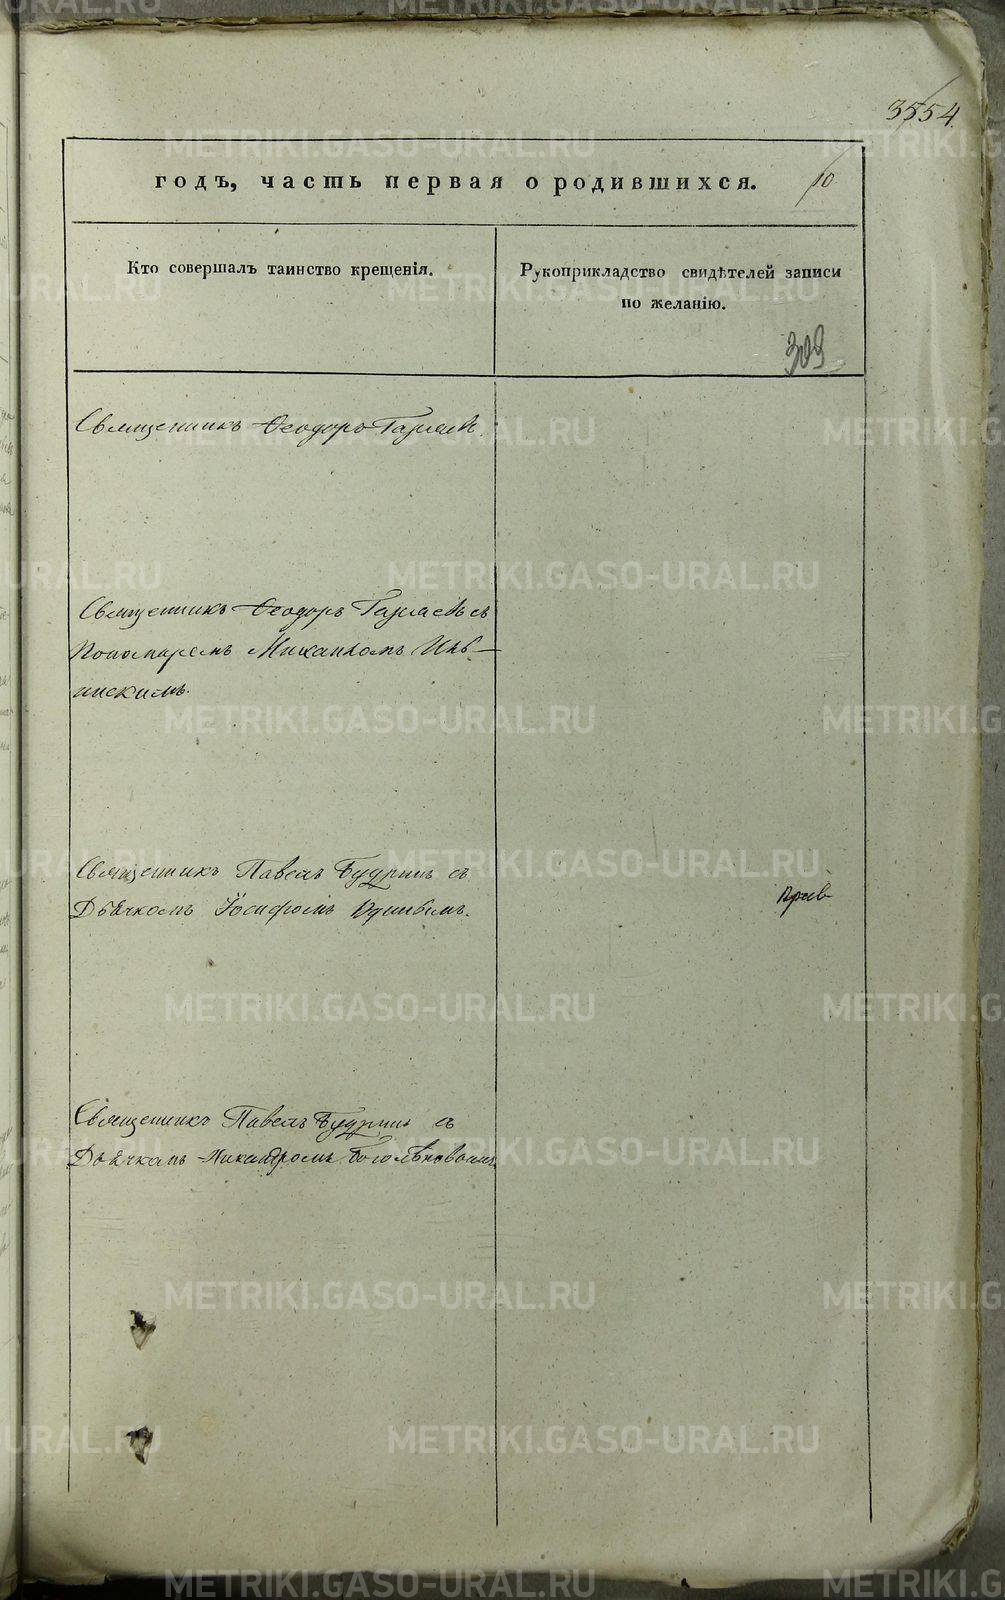 3554
годъ, часть первая о родившихся. 10
Кто совершалъ таинство крещенія.
Рукоприкладство свидѣтелей записи
по желанію.
309
Священникъ Ѳеодоръ
Священникъ Ѳеодоръ съ
Пономаремъ Михаиломъ Ив-
инскимъ.
Священникъ Павелъ Будринъ съ
Дьячкомъ Іосифомъ
Священникъ Павелъ Будринъ съ
Дьячкомъ Никандромъ Боголѣповымъ.
METRIKI.GASO-URAL.RU